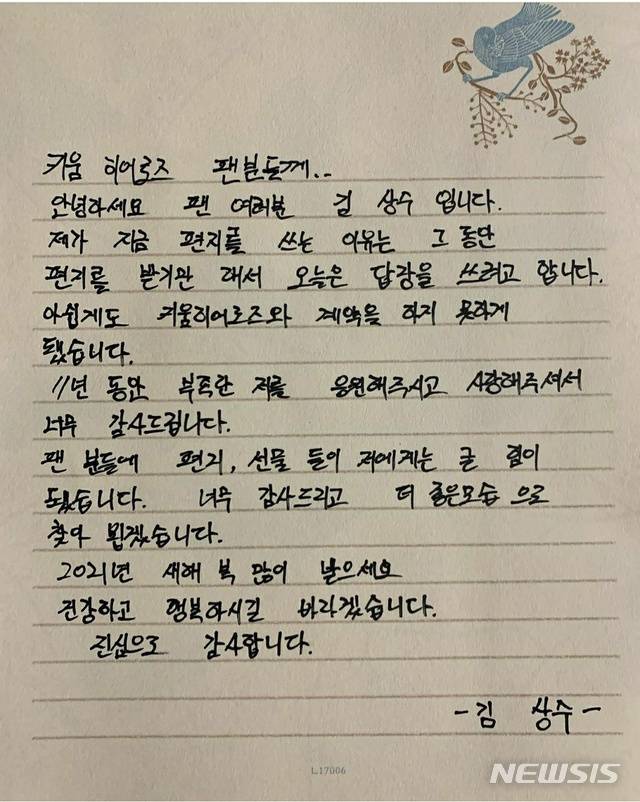 키움 히어로즈 팬분들께..
안녕하세요 팬 여러분 김 상수 입니다.
제가 지금 편지를 쓰는 이유는 그 동안
편지를 받기만 해서 오늘은 답장을 쓰려고 합니다.
아쉽게도 키움히어로즈와 계약을 하지 못하게
됐습니다.
11년 동안 부족한 저를 응원해주시고 사랑해주셔서
너무 감사드립니다.
팬 분들에 편지, 선물 들이 저에게는 큰 힘이
됐습니다. 너무 감사드리고 더 좋은모습 으로
찾아 뵙겠습니다.
2021년 새해 복 많이 받으세요
건강하고 행복하시길 바라겠습니다.
진심으로 감사합니다.
- 김 상수 -
L17006
NEWSIS